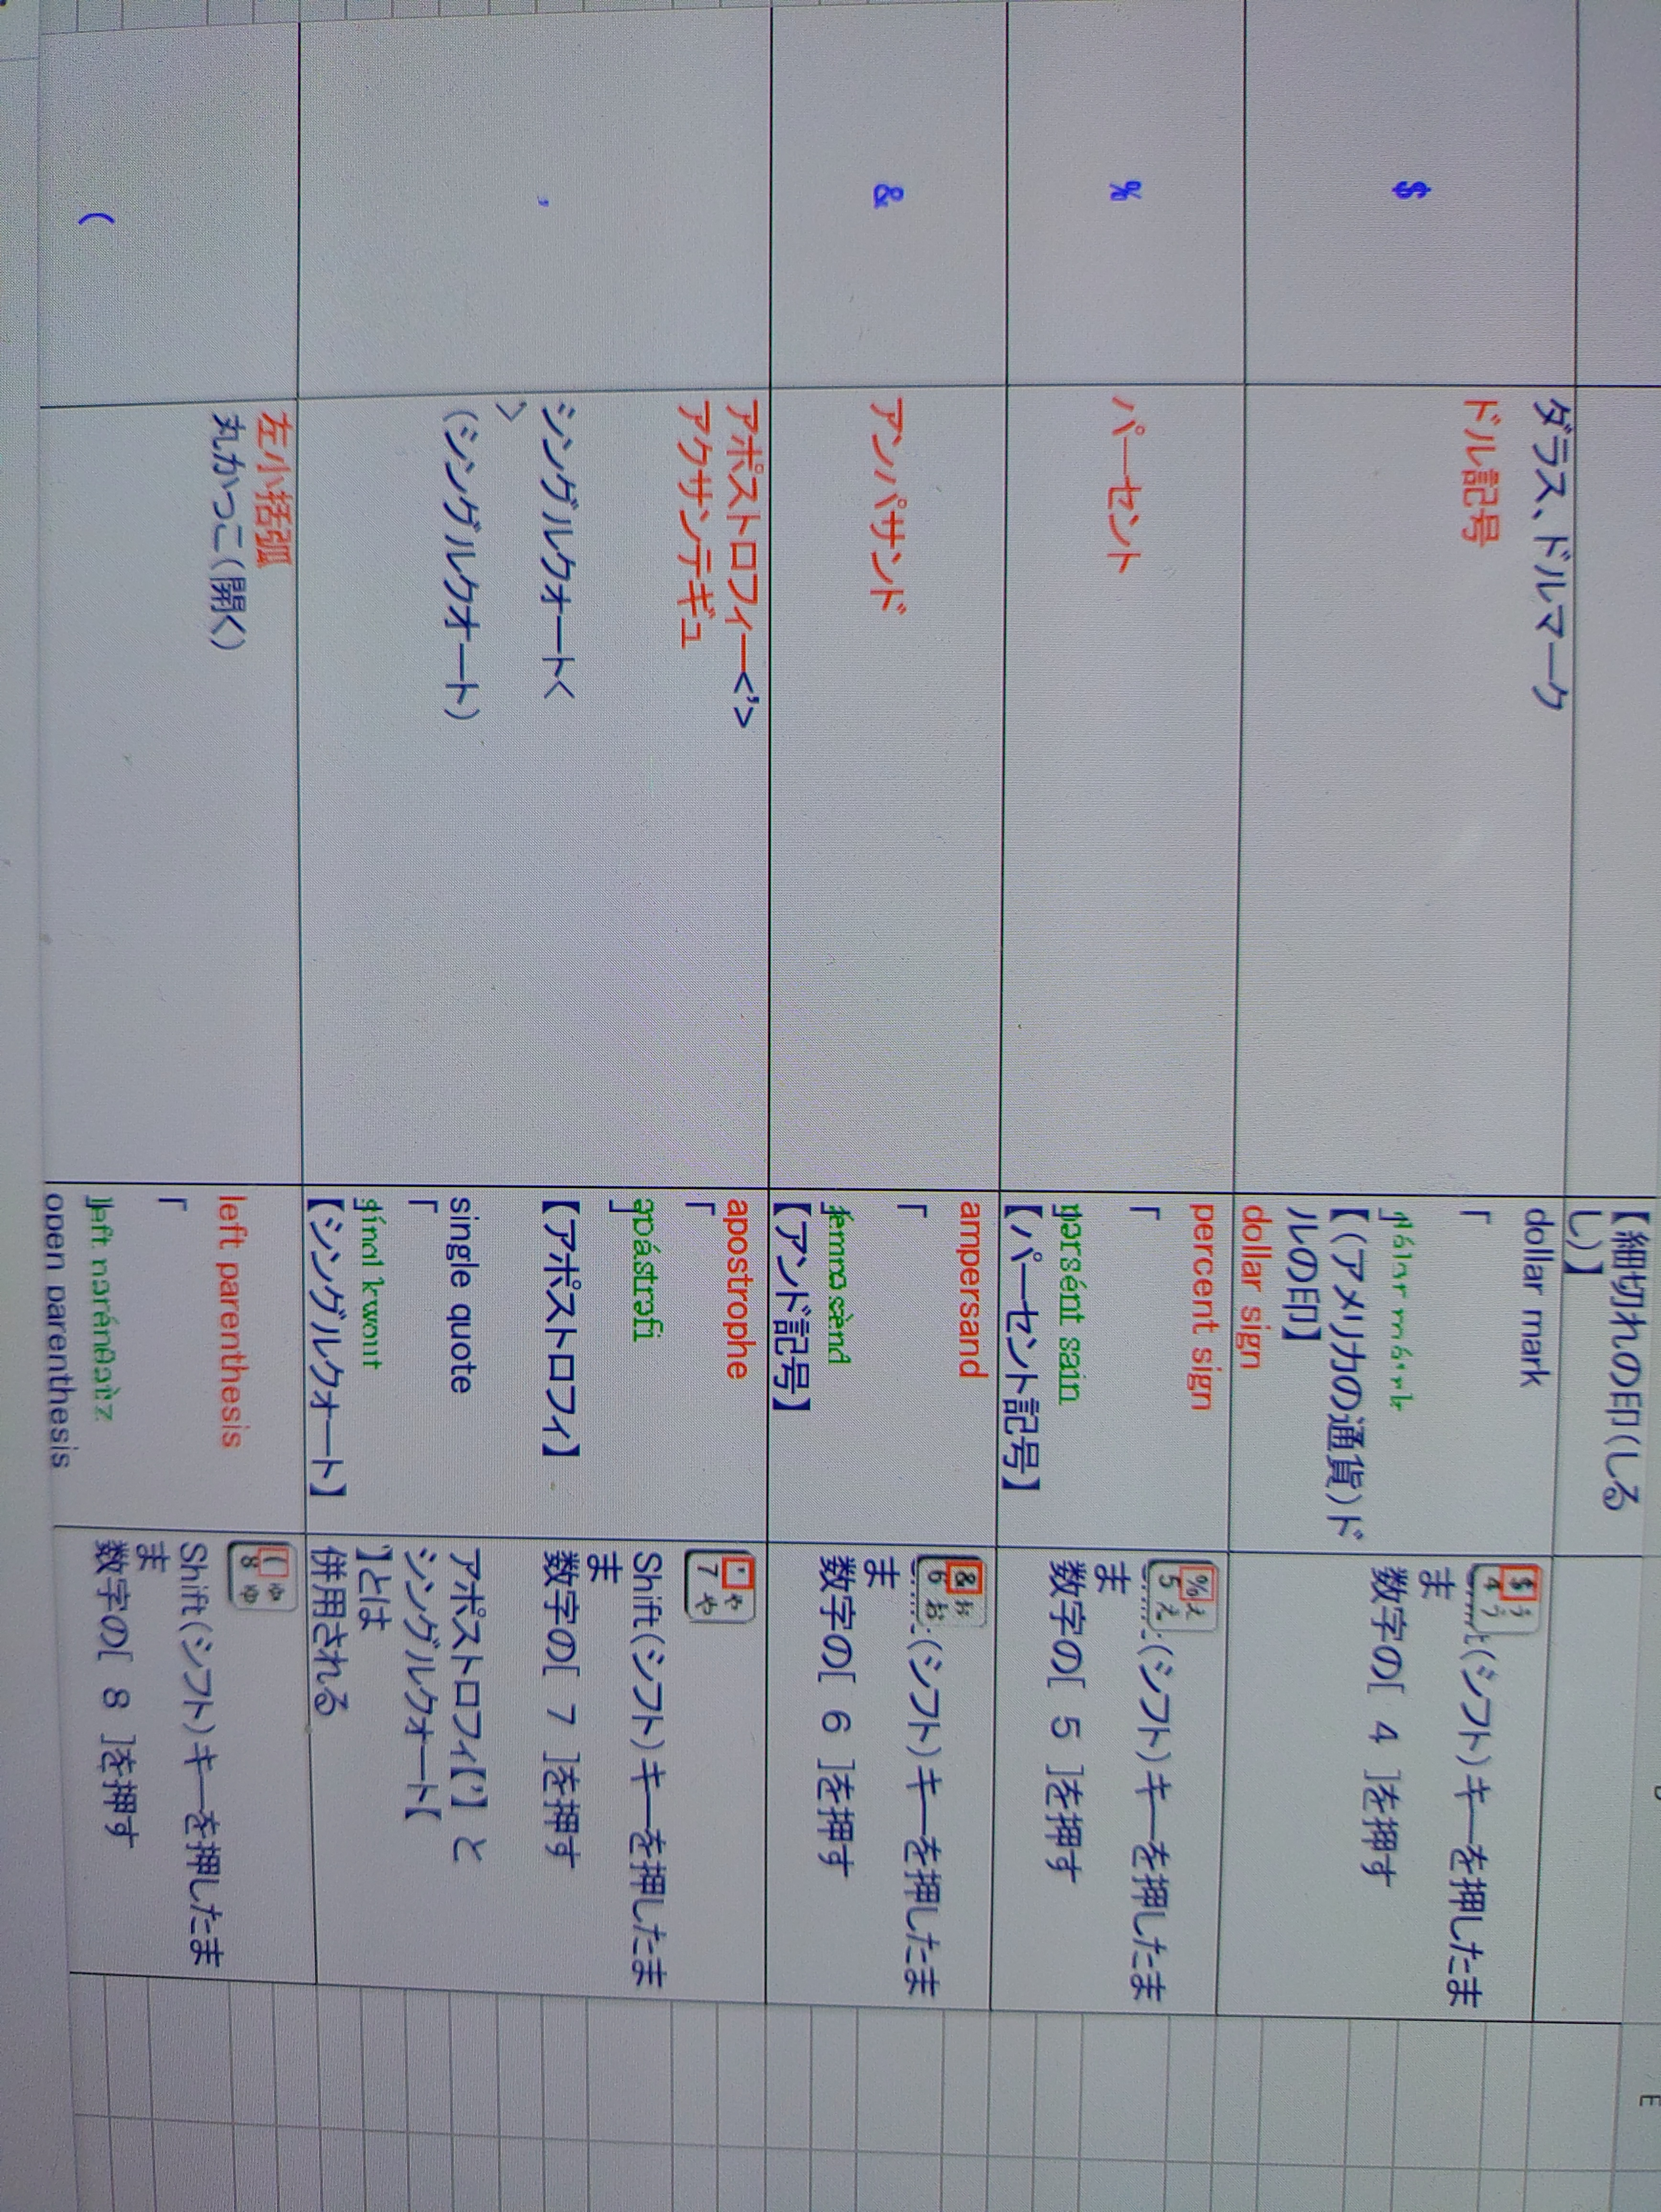 【細切れの印(しる
し)】
$
ダラス、ドルマーク
ドル記号
dollar mark
「
【(アメリカの通貨)ド
ルの印】
dollar sign
$ う
4 う
(シフト)キーを押したま
ま
数字の[ 4 ]を押す
%
パーセント
percent sign
「
pərsént sain
【パーセント記号】
% え
5 え
(シフト)キーを押したま
ま
数字の[ 5 ]を押す
&
アンパサンド
ampersand
「
【アンド記号】
& ぉ
6 お
(シフト)キーを押したま
ま
数字の[ 6 ]を押す
'
アポストロフィー<'>
アクサンテギュ
シングルクォート<
>
(シングルクオート)
apostrophe
「
əpástrəfi
」
【アポストロフィ】
single quote
「
【シングルクォート】
' ゃ
7 や
Shift(シフト)キーを押したま
ま
数字の[ 7 ]を押す
アポストロフィ【'】 と
シングルクォート【
】とは
併用される
(
左小括弧
丸かっこ(開く)
left parenthesis
「
open parenthesis
( ゅ
8 ゆ
Shift(シフト)キーを押したま
ま
数字の[ 8 ]を押す
E